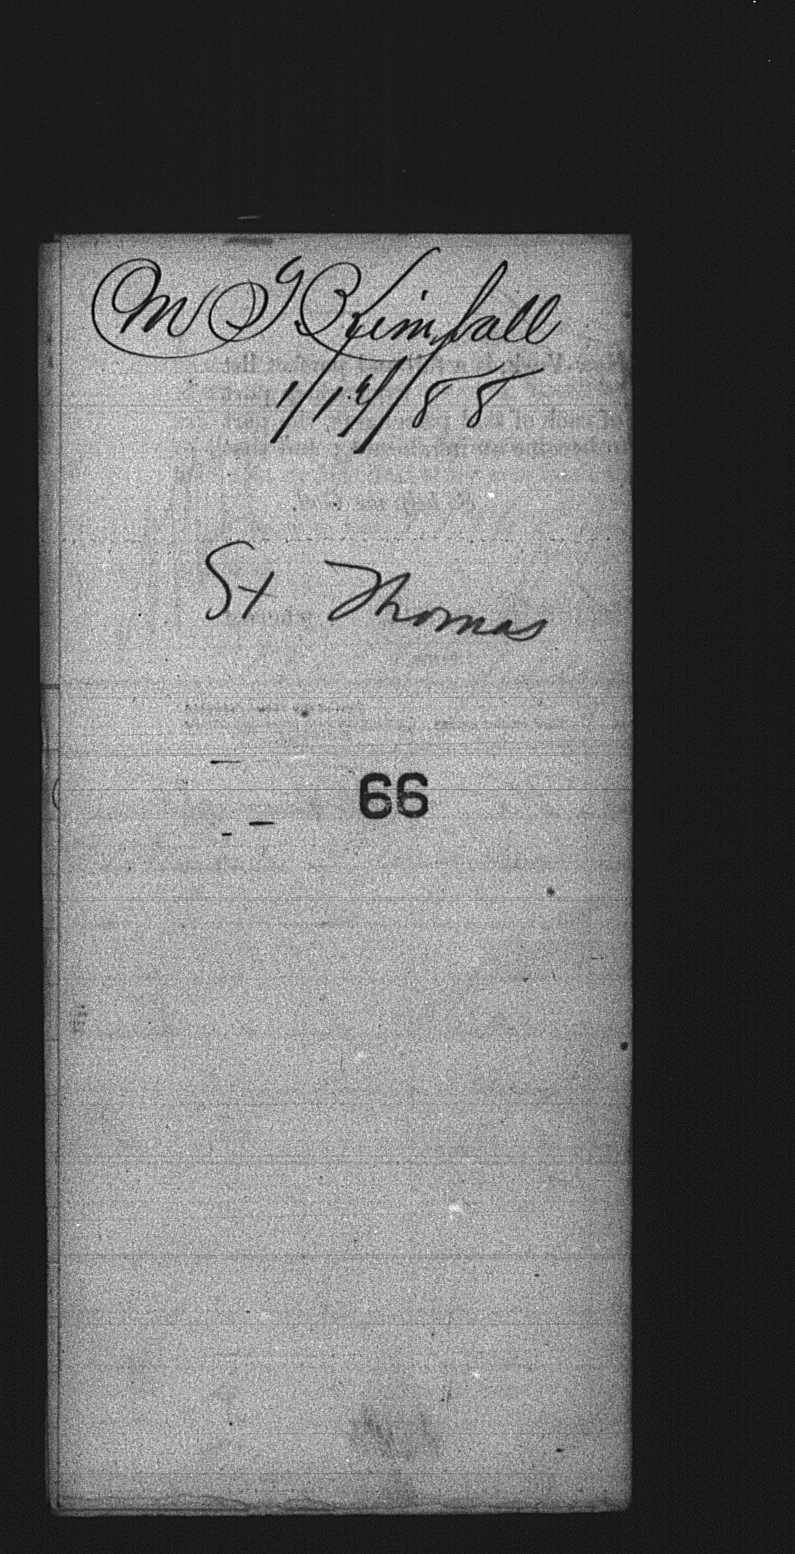 M G Kimball
1/14/88
St Thomas
66